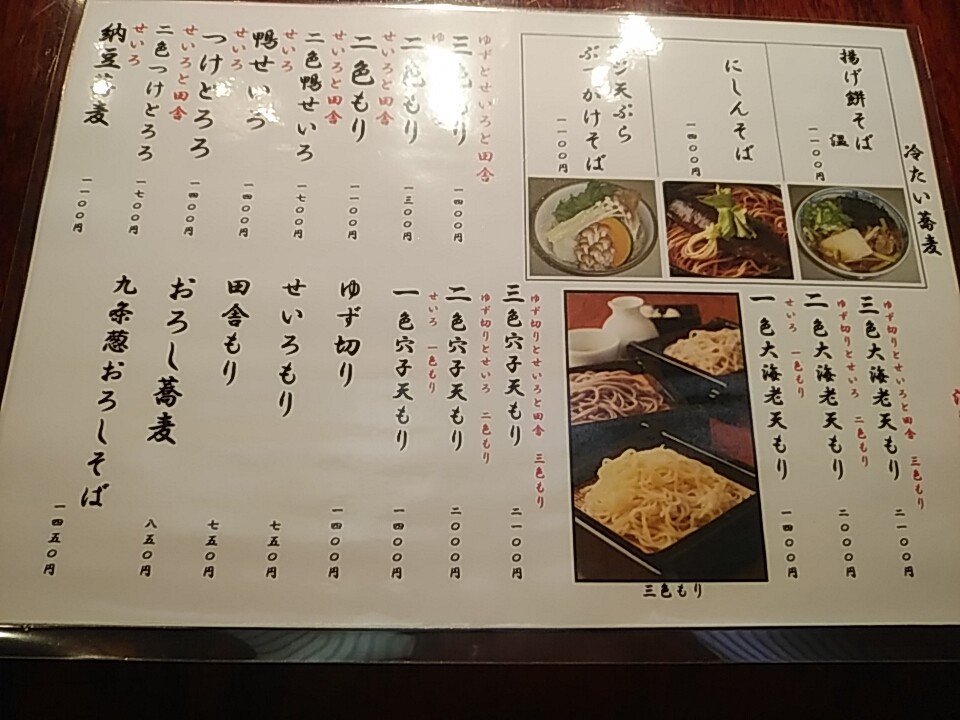 冷たい蕎麦
揚げ餅そば
温
一一〇〇円
にしんそば
一四〇〇円
天ぷら
ぶっかけそば
一一〇〇円
ゆず切りとせいろと田舎 三色もり
三色大海老天もり
二一〇〇円
ゆず切りとせいろ 二色もり
二色大海老天もり
二〇〇〇円
せいろ 一色もり
一色大海老天もり
一四〇〇円
三色もり
ゆずとせいろと田舎
三色もり
一四〇〇円
二色もり
一三〇〇円
せいろと田舎
二色もり
一一〇〇円
せいろと田舎
二色鴨せいろ
一七〇〇円
せいろ
鴨せいろ
一四〇〇円
せいろ
つけとろろ
一四〇〇円
せいろと田舎
二色つけとろろ
一七〇〇円
せいろ
納豆蕎麦
一一〇〇円
ゆず切りとせいろと田舎 三色もり
三色穴子天もり
二一〇〇円
ゆず切りとせいろ 二色もり
二色穴子天もり
二〇〇〇円
せいろ 一色もり
一色穴子天もり
一四〇〇円
ゆず切り
一四〇〇円
せいろもり
七五〇円
田舎もり
七五〇円
おろし蕎麦
八五〇円
九条葱おろしそば
一四五〇円